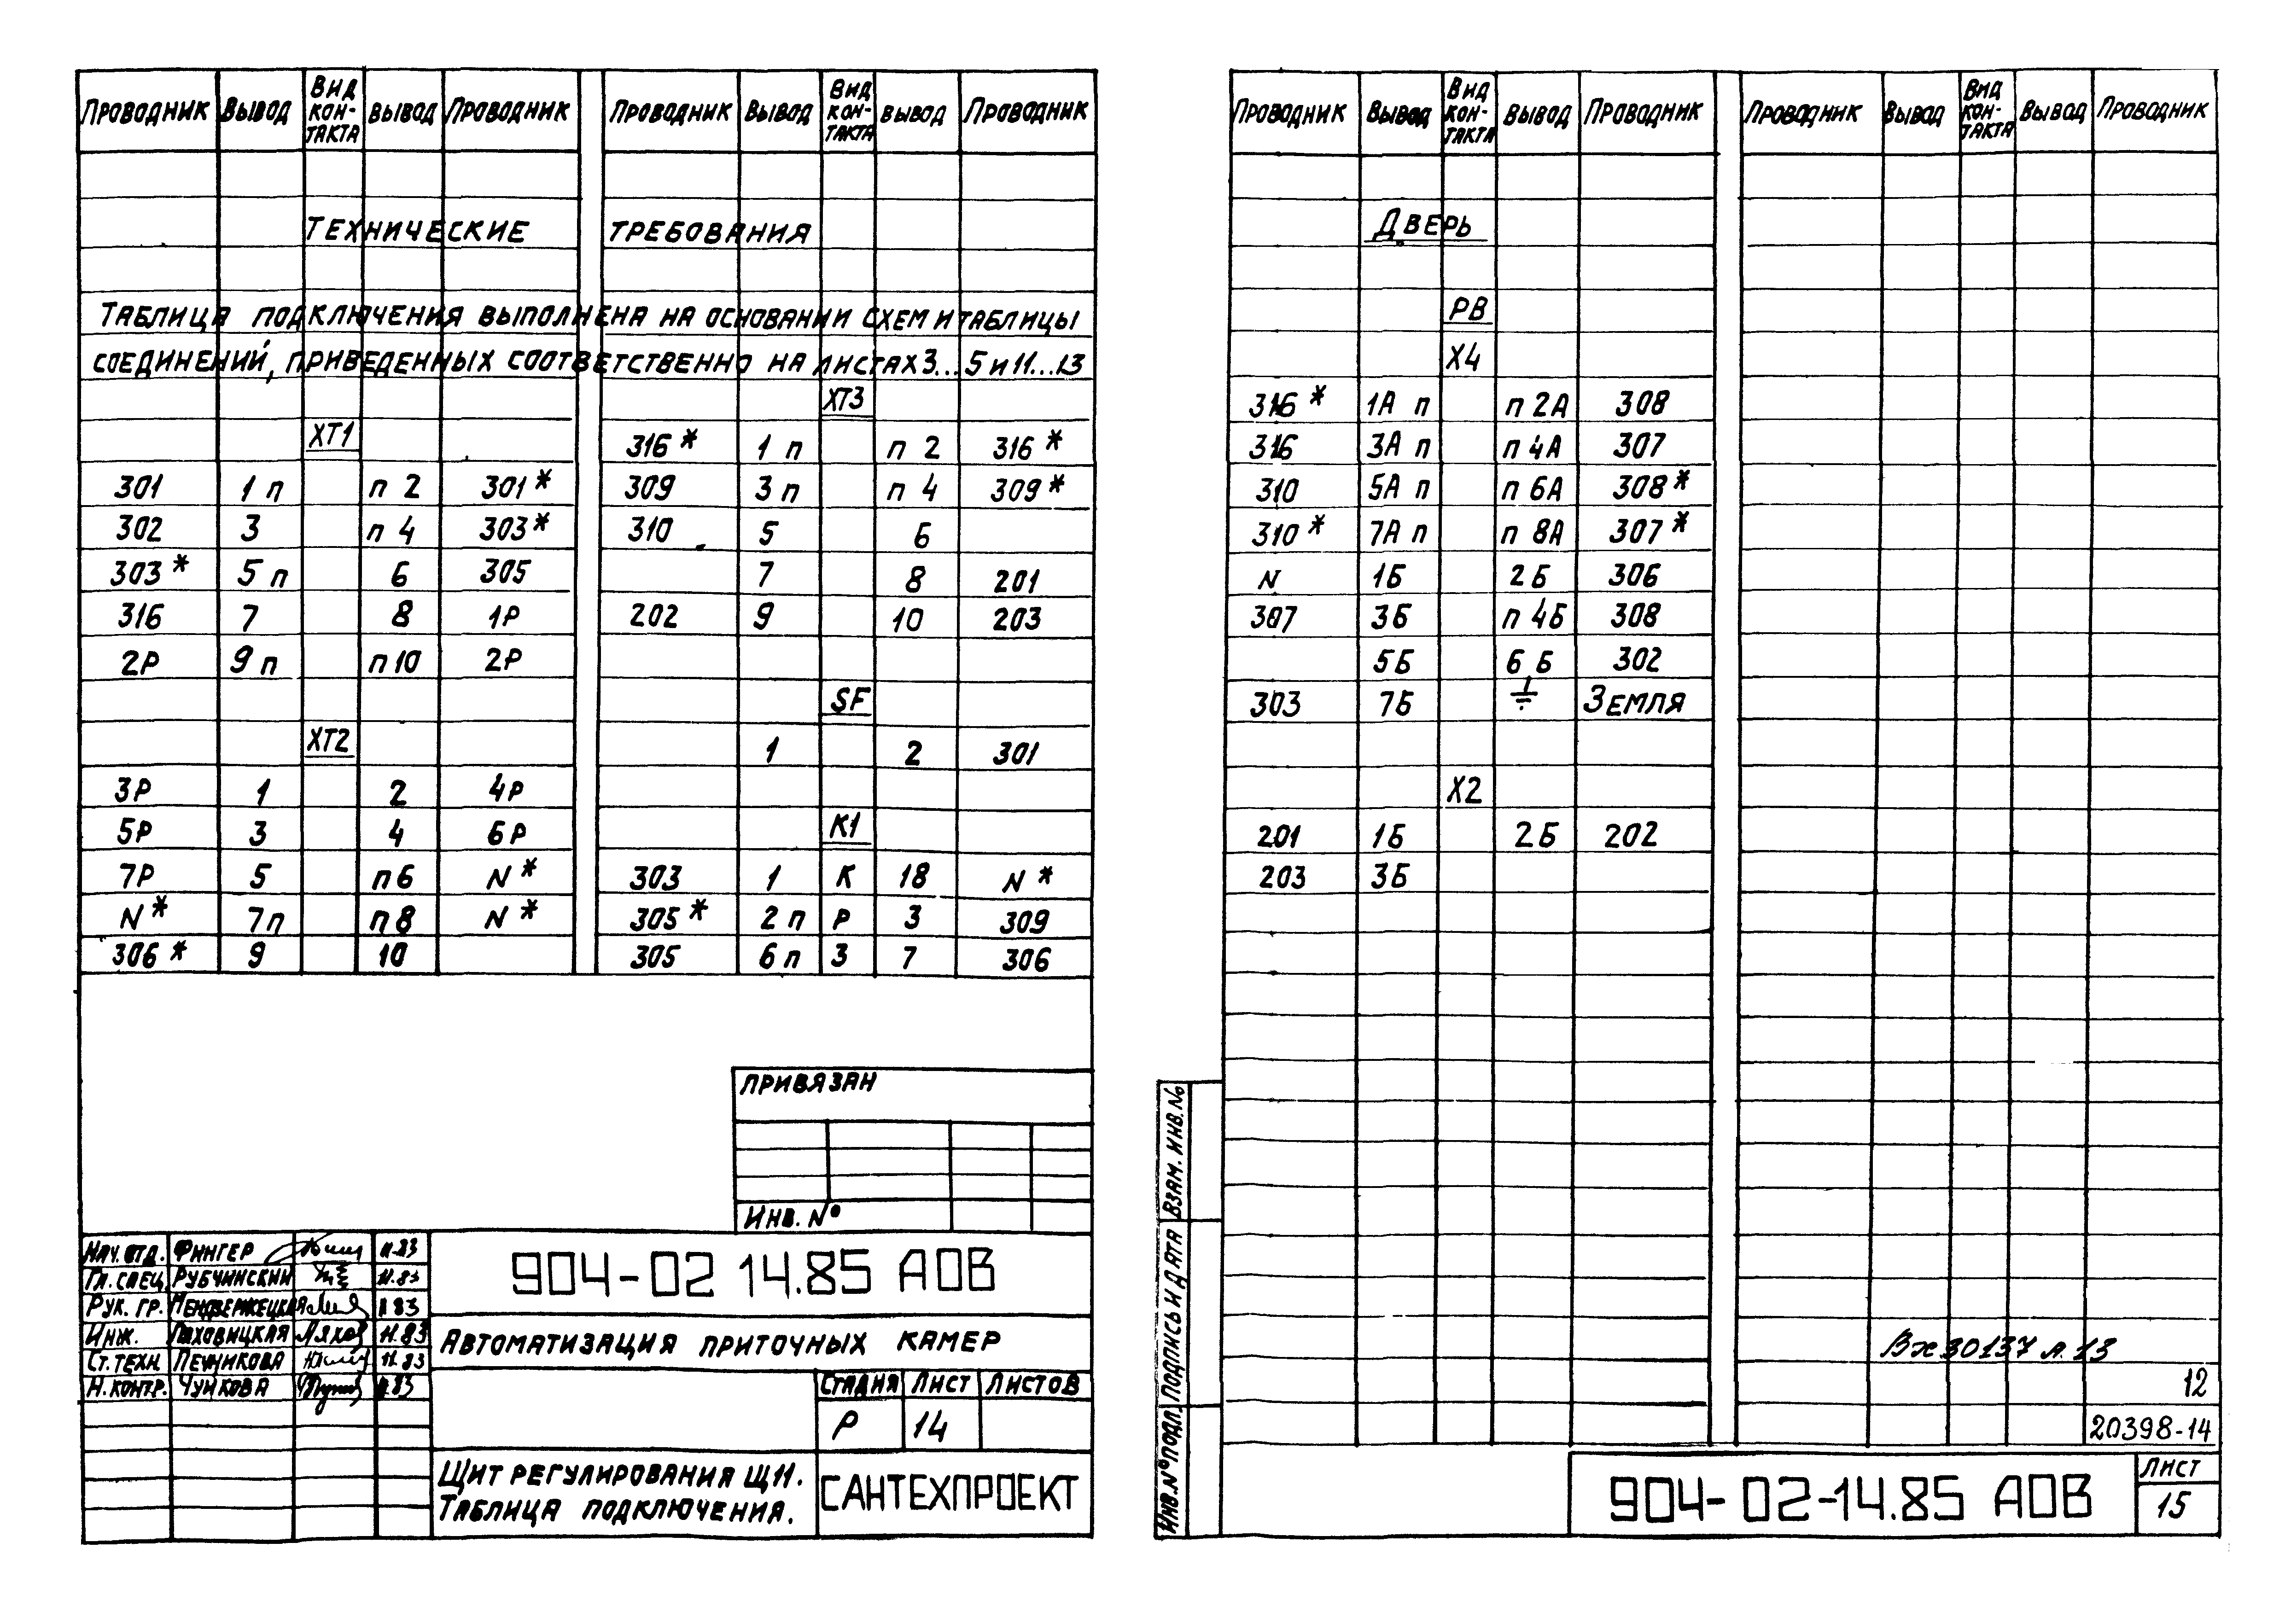 Проводник Вывод Вид контакта Вывод Проводник Проводник Вывод Вид контакта Вывод Проводник
Технические требования
Таблица подключения выполнена на основании схем и таблицы
соединений, приведенных соответственно на листах 3...5 и 11...13
XT3
XT1 316* 1 п п 2 316*
301 1 п п 2 301* 309 3 п п 4 309*
302 3 п 4 303* 310 5 6
303* 5 п 6 305 7 8 201
316 7 8 1Р 202 9 10 203
2Р 9 п п 10 2Р
SF
XT2 1 2 301
3Р 1 2 4Р
5Р 3 4 6Р К1
7Р 5 п 6 N* 303 1 К 18 N*
N* 7 п п 8 N* 305* 2 п Р 3 309
306* 9 10 305 6 п З 7 306
Привязан
Инв. №
Нач. отд. Фингер 11.83
Гл. спец. Рубчинский 11.83
Рук. гр. 11 83
Инж. Ляховицкая 11.83
Ст. техн. Печникова 11.83
Н. контр. Чуйкова 11.83
904-02 14.85 АОВ
Автоматизация приточных камер
Стадия Лист Листов
Р 14
Щит регулирования Щ11.
Таблица подключения.
САНТЕХПРОЕКТ
Проводник Вывод Вид контакта Вывод Проводник Проводник Вывод Вид контакта Вывод Проводник
Дверь
РВ
Х4
316* 1А п п 2А 308
316 3А п п 4А 307
310 5А п п 6А 308*
310* 7А п п 8А 307*
N 1Б 2Б 306
307 3Б п 4Б 308
5Б 6Б 302
303 7Б ⏚ Земля
Х2
201 1Б 2Б 202
203 3Б
Взам. инв. №
Подпись и дата
Инв. № подл.
Вх 30137 л. 13
12
20398-14
904-02-14.85 АОВ
Лист
15